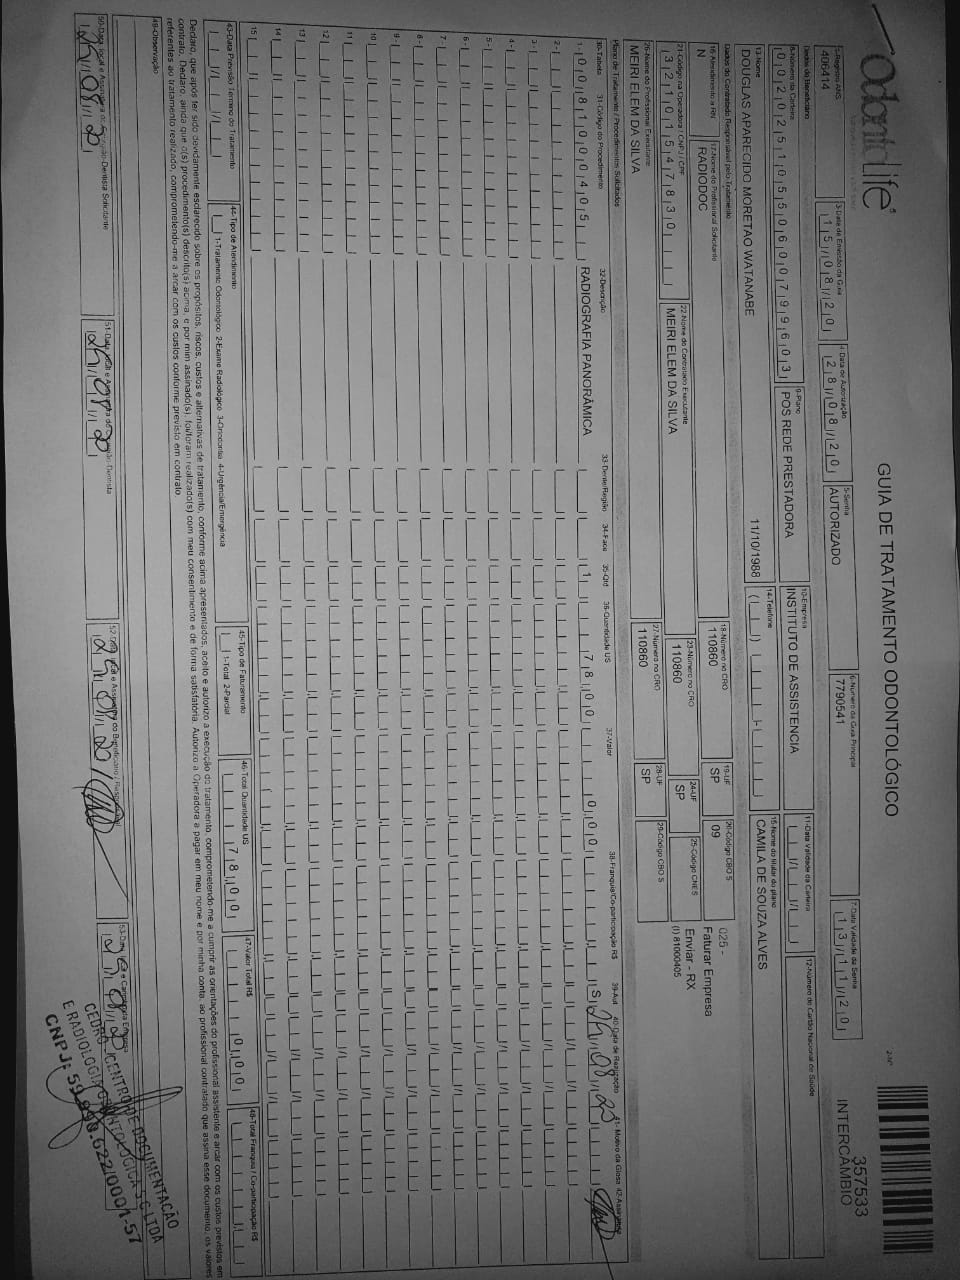 OdontLife
GUIA DE TRATAMENTO ODONTOLÓGICO
2-Nº
357533
INTERCÂMBIO
1-Registro ANS
406414
3-Data de Emissão da Guia
15/08/20
4-Data de Autorização
28/08/20
5-Senha
AUTORIZADO
6-Número da Guia Principal
7790541
7-Data Validade da Senha
13/11/20
Dados do Beneficiário
8-Número da Carteira
00202510550600799603
9-Plano
POS REDE PRESTADORA
10-Empresa
INSTITUTO DE ASSISTENCIA
11-Data Validade da Carteira
12-Número do Cartão Nacional de Saúde
13-Nome
DOUGLAS APARECIDO MORETAO WATANABE
11/10/1988
14-Telefone
15-Nome do titular do plano
CAMILA DE SOUZA ALVES
Dados do Contratado Responsável pelo Tratamento
16-Atendimento a RN
N
17-Nome do Profissional Solicitante
RADIODOC
18-Número no CRO
110860
19-UF
SP
20-Código CBO S
09
025 -
Faturar Empresa
Enviar - RX
(I) 81000405
21-Código na Operadora / CNPJ / CPF
32101547830
22-Nome do Contratado Executante
MEIRI ELEM DA SILVA
23-Número no CRO
110860
24-UF
SP
25-Código CNES
26-Nome do Profissional Executante
MEIRI ELEM DA SILVA
27-Número no CRO
110860
28-UF
SP
29-Código CBO S
Plano de Tratamento / Procedimentos Solicitados
30-Tabela 31-Código do Procedimento 32-Descrição 33-Dente/Região 34-Face 35-Qtd 36-Quantidade US 37-Valor 38-Franquia/Co-participação R$ 39-Aut 40-Data de Realização 41-Motivo da Glosa 42-Assinatura
1- 00 81000405 RADIOGRAFIA PANORÂMICA 1 78,00 0,00 S
2-
3-
4-
5-
6-
7-
8-
9-
10
11
12
13
14
15
43-Data Previsão Término do Tratamento
44-Tipo de Atendimento
1-Tratamento Odontológico 2-Exame Radiológico 3-Ortodontia 4-Urgência/Emergência
45-Tipo de Faturamento
1-Total 2-Parcial
46-Total Quantidade US
78,00
47-Valor Total R$
0,00
48-Total Franquia / Co-participação R$
Declaro, que após ter sido devidamente esclarecido sobre os propósitos, riscos, custos e alternativas de tratamento, conforme acima apresentados, aceito e autorizo a execução do tratamento, comprometendo-me a cumprir as orientações do profissional assistente e arcar com os custos previstos em
contrato. Declaro, ainda que o(s) procedimento(s) descrito(s) acima, e por mim assinado(s), foi/foram realizado(s) com meu consentimento e de forma satisfatória. Autorizo a Operadora a pagar em meu nome e por minha conta, ao profissional contratado que assina esse documento, os valores
referentes ao tratamento realizado, comprometendo-me a arcar com os custos conforme previsto em contrato.
49-Observação
50-Data, local e Assinatura do Cirurgião-Dentista Solicitante
51-Data, local e Assinatura do Cirurgião-Dentista
52-Data, local e Assinatura do Beneficiário / Responsável
53-Data, local e Carimbo da Empresa
CEDRO CENTRO DE DOCUMENTAÇÃO
E RADIOLOGIA ODONTOLOGICA S C LTDA
CNPJ: 59.990.622/0001-57